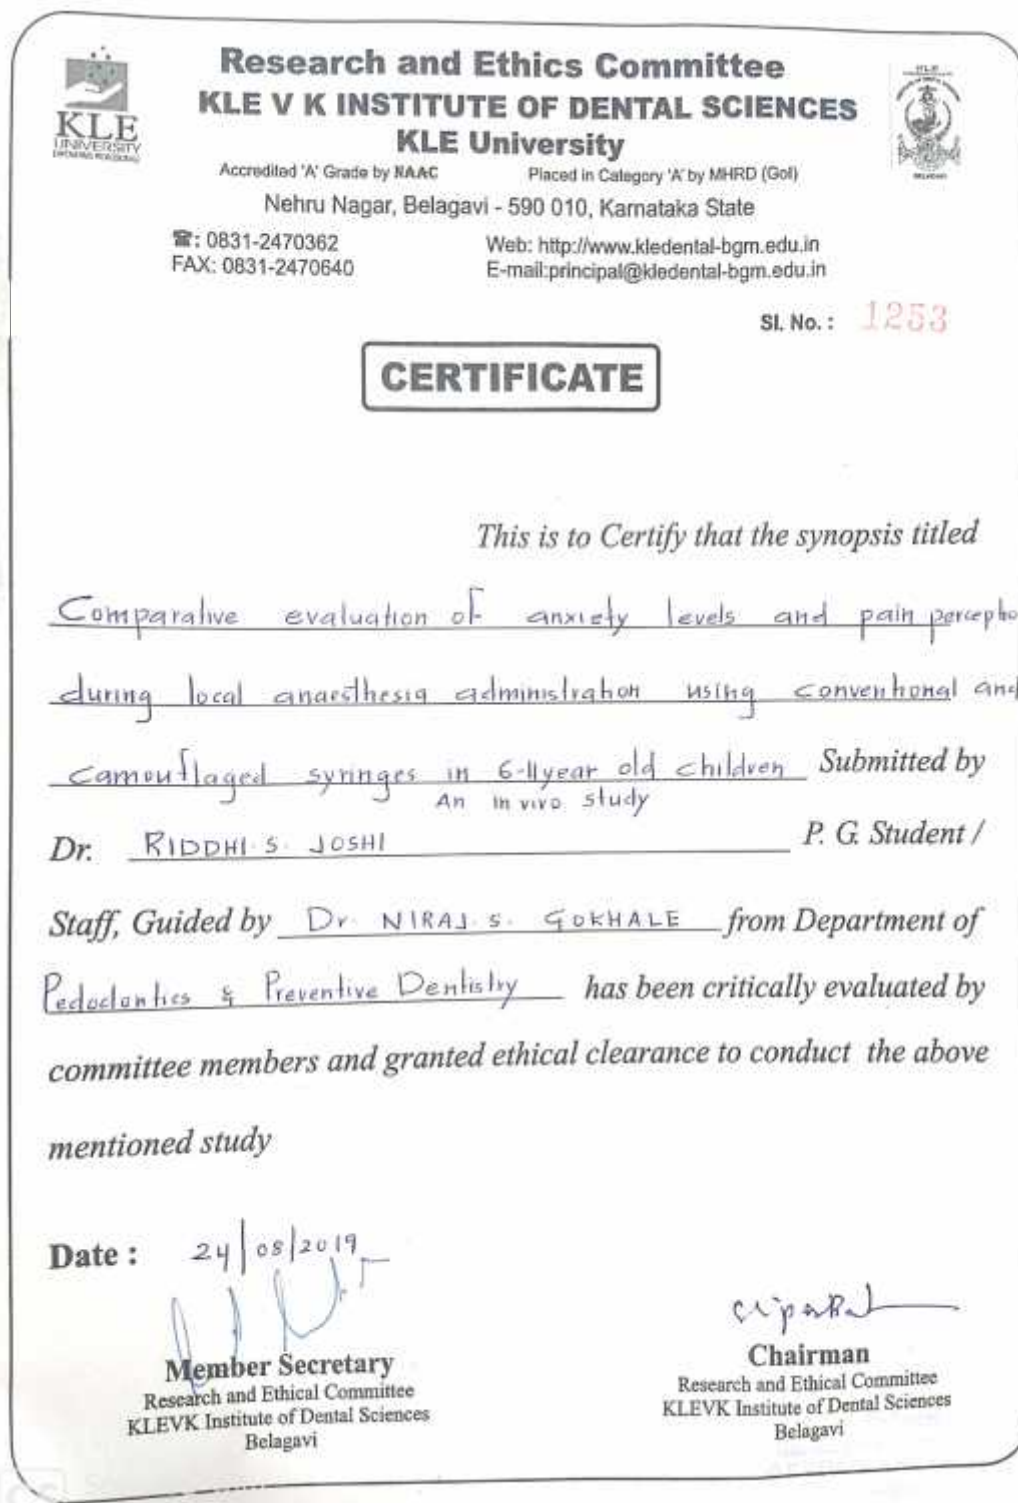 Research and Ethics Committee
KLE V K INSTITUTE OF DENTAL SCIENCES
KLE University
KLE
UNIVERSITY
Accredited 'A' Grade by NAAC Placed in Category 'A' by MHRD (GoI)
Nehru Nagar, Belagavi - 590 010, Karnataka State
☎: 0831-2470362 Web: http://www.kledental-bgm.edu.in
FAX: 0831-2470640 E-mail:principal@kledental-bgm.edu.in
Sl. No. : 1253
CERTIFICATE
This is to Certify that the synopsis titled
Comparative evaluation of anxiety levels and pain percepto
during local anaesthesia administration using conventional and
camouflaged syringes in 6-11year old children Submitted by
An in vivo study
Dr. RIDDHI. S. JOSHI P. G. Student /
Staff, Guided by Dr. NIRAJ. S. GOKHALE from Department of
Pedodontics & Preventive Dentistry has been critically evaluated by
committee members and granted ethical clearance to conduct the above
mentioned study
Date : 24/08/2019
Member Secretary
Research and Ethical Committee
KLEVK Institute of Dental Sciences
Belagavi
Chairman
Research and Ethical Committee
KLEVK Institute of Dental Sciences
Belagavi